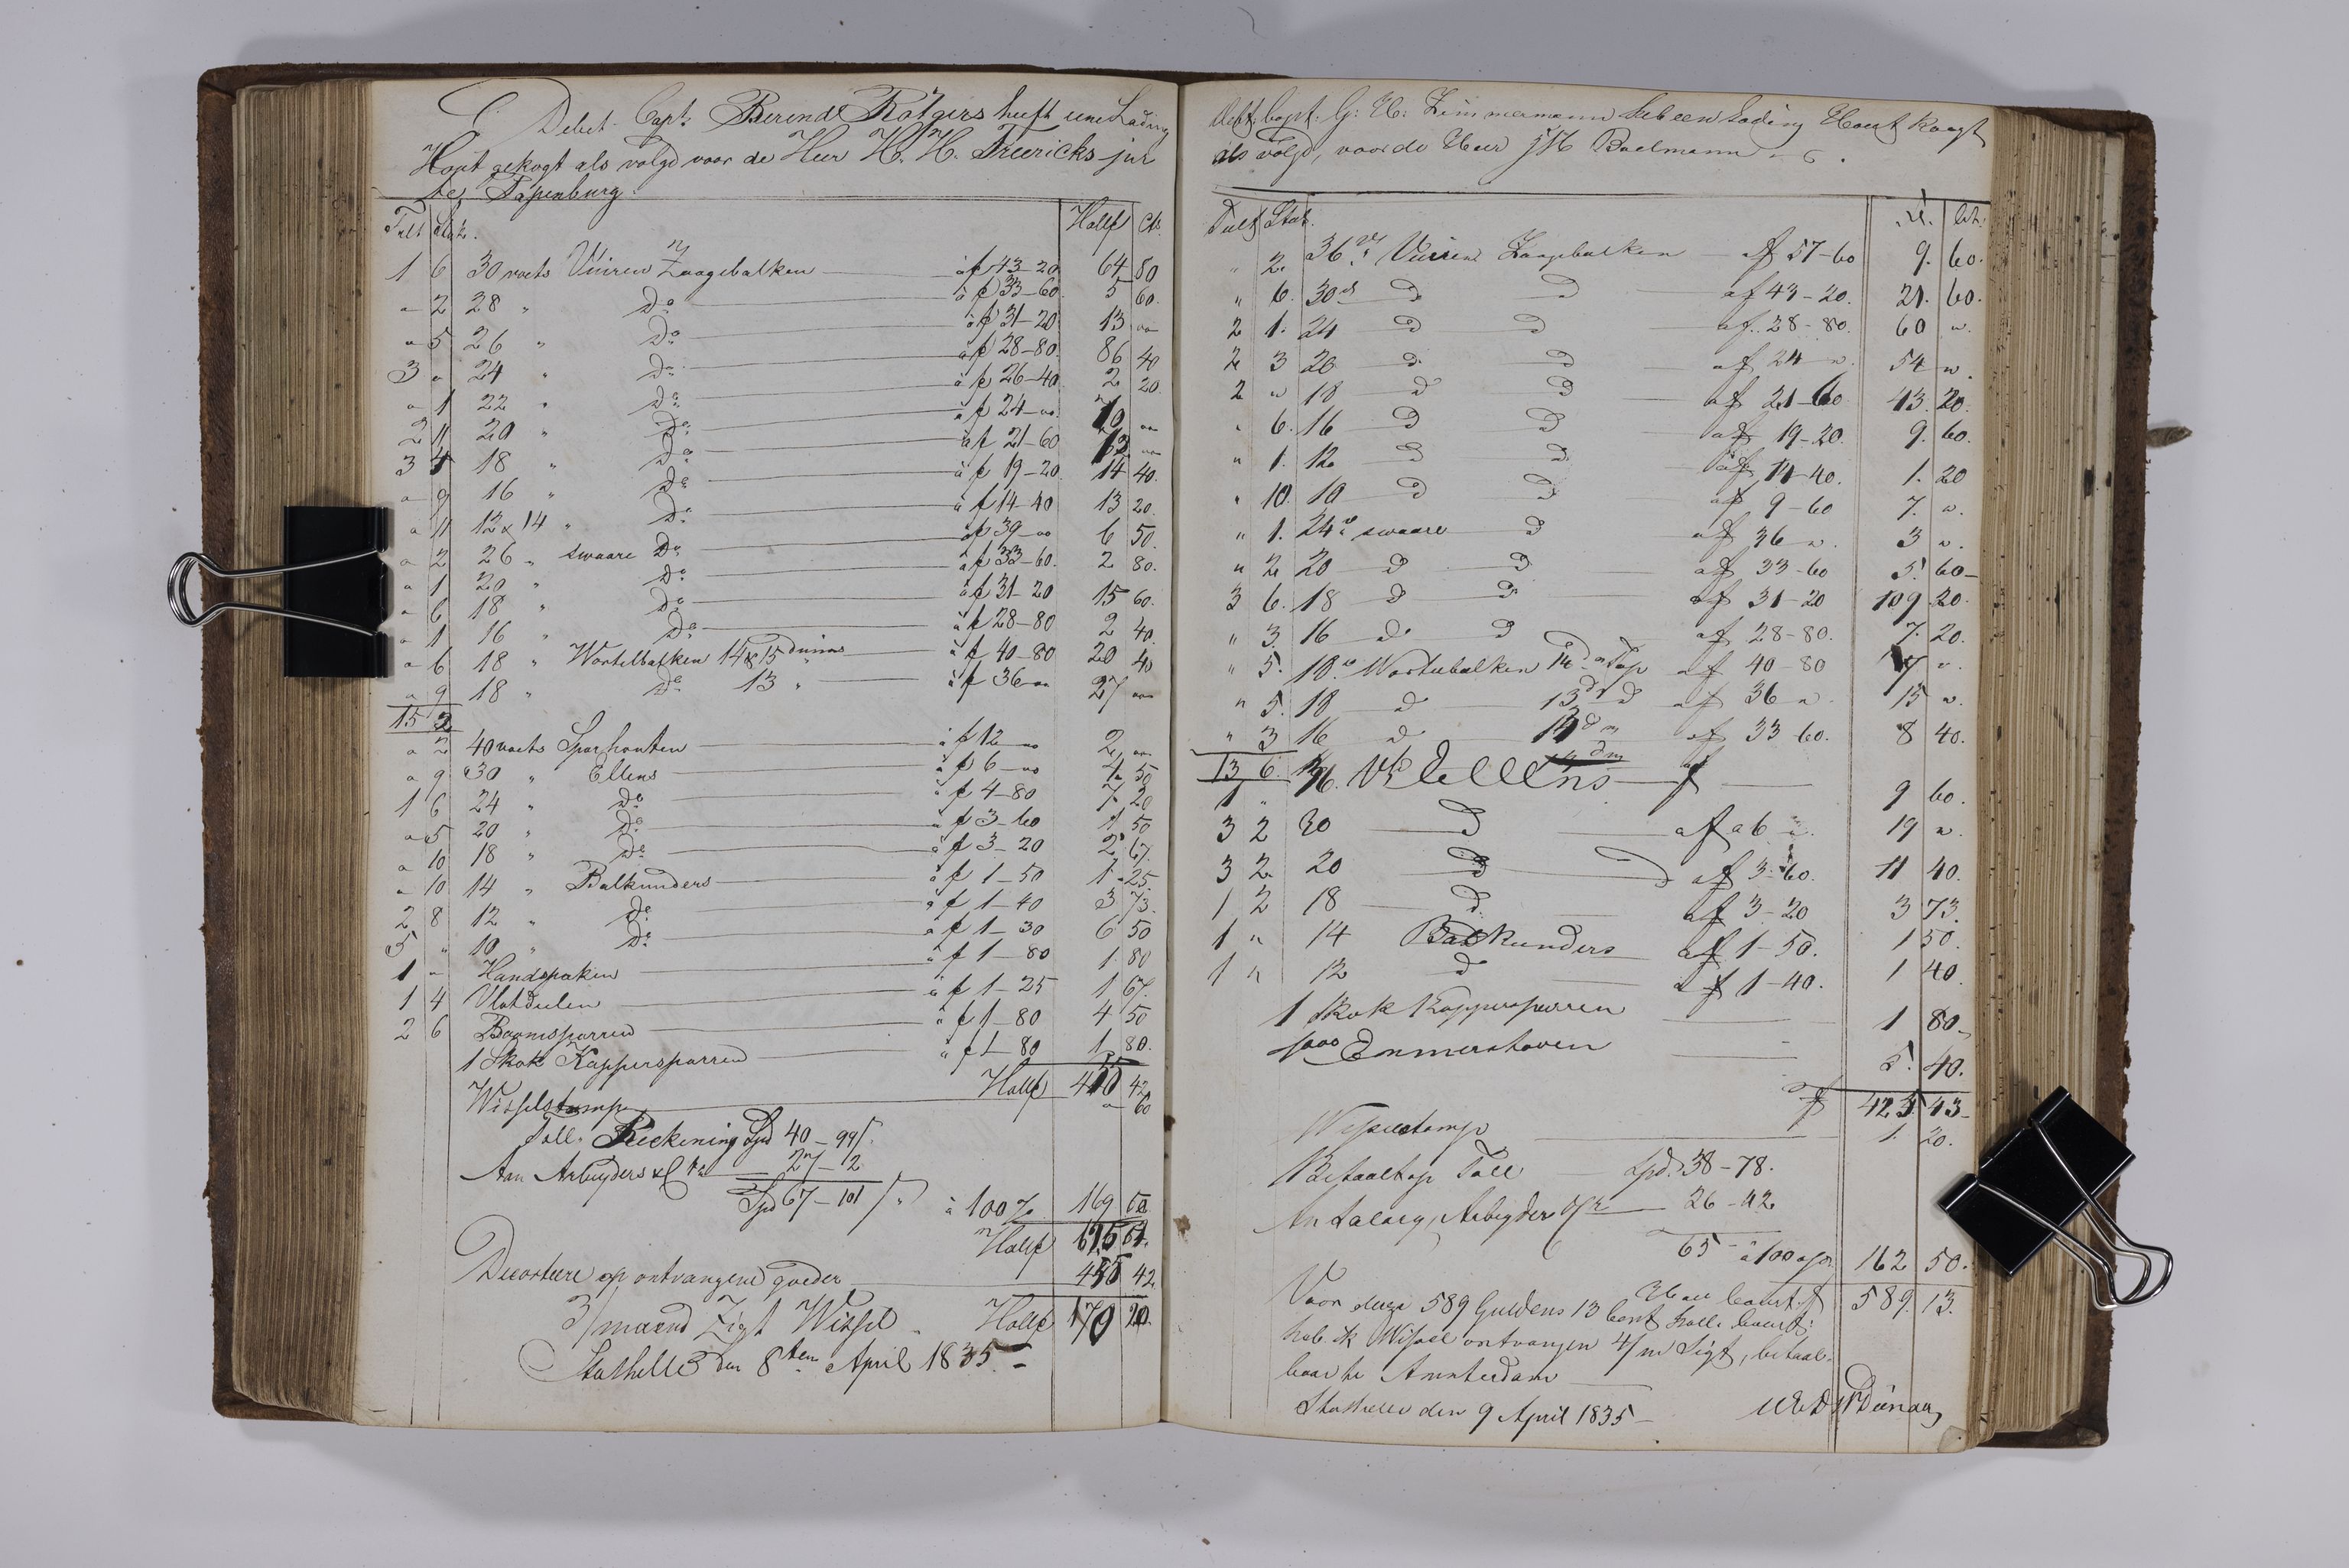 Debet Capt. Berend Rötgers heeft eene Lading
Hout gekogt als volgd voor de Heer H. H. Freericks jur
te Papenburg.
Tult Stuk. Hollf Cts.
1 6 30 voets Vüiren Zaagebalken à f 43-20 64 80
" 2 28 " Do à f 33-60 5 60.
" 5 26 " Do à f 31-20 13 "
3 " 24 " Do à f 28-80 86 40
" 1 22 " Do à f 26-40 2 20
2 11 20 " Do à f 24-" 70 "
3 4 18 " Do à f 21-60
" 9 16 " Do à f 19-20 14 40.
" 11 12 & 14 " Do à f 14-40 13 20.
" 2 26 " swaare Do à f 39-" 6 50.
" 1 20 " Do à f 33-60. 2 80.
" 6 18 " Do à f 31-20 15 60.
" 1 16 " Do à f 28-80 2 40.
" 6 18 " Wortelbalken 14 & 15 duims à f 40-80 20 40
" 9 18 " Do 13 " à f 36 " 27 "
15 2
" 2 40 voets Sparhouten à f 12 " 2 "
" 9 30 " Ellens à f 6 " 4 50
1 6 24 " Do à f 4-80 7 20
" 5 20 " Do à f 3-60 1 50
" 10 18 " Do à f 3-20 2 67.
" 10 14 " Balkunders à f 1-50 1 25.
2 8 12 " Do à f 1-40 3 73.
5 " 10 " Do à f 1-30 6 50
1 " Handspaken à f 1-80 1 80
1 4 Vlotdeelen à f 1-25 1 67.
2 6 Boomsparren à f 1-80 4 50
1 Skok Kappersparren à f 1-80 1 80.
Hollf 42
Wisselstemp " 60
Toll. Reckening Spd 40-99
Aan Arbeyders & 27-2
Spd 67-101 à 100 % 169
Hollf
Decortere op ontvangene goeder 42
3/maand Zigt Wissel Hollf 170 20.
Stathelle den 8ten April 1835.
Debt. Capt. G: H: Zimmermann heb een Lading Hout Koogt
als Volgd, voor de Heer J H Boelmann
Tult Stuk. f. Ct.
" 2. 36 vt Vuiren Zaagebalken af 57-60 9. 60.
" 6. 30 vt D D af 43-20. 21. 60.
2 1. 24 D D af 28-80. 60 "
2 3 20 D D af 24 " 54 "
2 " 18 D D af 21-60 43. 20.
" 6. 16 D D af 19-20. 9. 60.
" 1. 12 D D af 14-40. 1. 20
" 10. 10 D D af 9-60 7. "
" 1. 24 vt swaare D af 36 " 3 "
" 2 20 D D af 33-60 5. 60
3 6. 18 D D af 31-20 109 20.
" 3 16 D D af 28-80. 7. 20.
" 5. 18 Wortelbalken 14 dm Top af 40-80 17 "
" 5. 18 D 13 D af 36 " 15 "
" 3 16 D af 33 60. 8 40.
13 6
1 " 36. Vt Ellens f 9 60.
3 2 30 D af 6 " 19 "
3 2 20 D af 3-60. 11 40.
1 2 18 D af 3-20 3 73.
1 " 14 Balkunders af 1-50. 1 50.
1 " 12 D af 1-40. 1 40.
1 Skok Kappersparren 1 80
1000 Emmerstaven 5. 40.
f 425 43
Wisselstemp 1. 20.
Betaalt op Toll Spd. 38-78.
An Arbeyder 26-42
65 à 100 162 50.
Holl Courts f 589. 13.
Voor deze 589 Guldens 13 Cent holl. Court:
heb ik Wissel ontvangen 4/m Sigt, betaal-
baar te Amsterdam
Stathelle den 9 April 1835